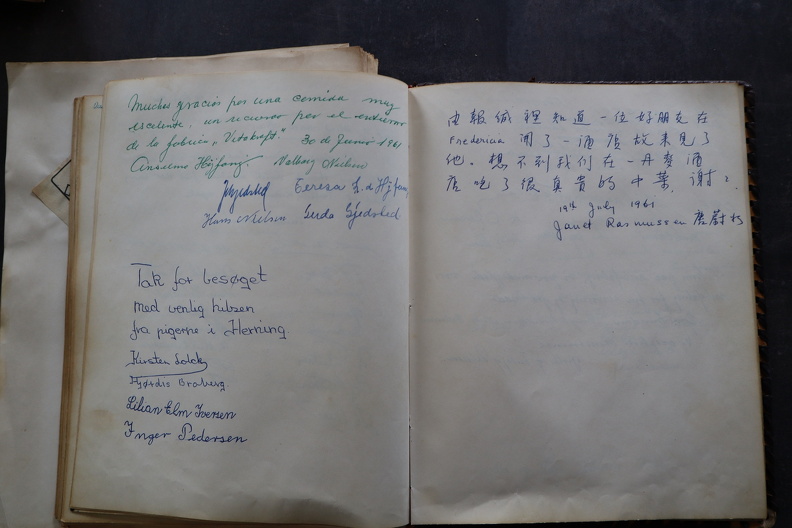 Muchas gracias por una comida muy
escelente, un recuerdo por el
de la fabrica „Vitakraft." 30 de Junio 1961
Anselmo Højfang. Valborg Nielsen
Teresa L. de Højfang
Hans Nielsen Gerda Gjedsted
Tak for besøget
med venlig hilsen
fra pigerne i Herning
Kirsten
Hjørdis Broberg.
Lilian Elm Iversen
Inger Pedersen
由報紙裡知道一位好朋友在
Fredericia 開了一酒店故來見了
他. 想不到我們在一丹麥酒
店吃了很真貴的中菜. 謝:
19th July 1961
Janet Rasmussen 唐蔚